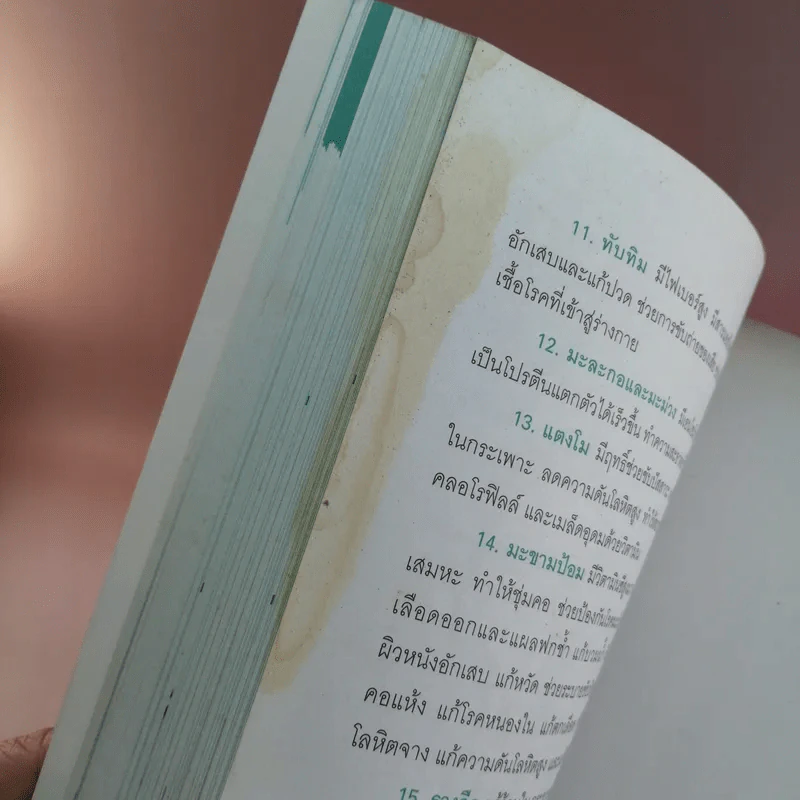 11. ทับทิม มีไฟเบอร์สูง
อักเสบและแก้ปวด ช่วยการขับถ่ายของเสีย
เชื้อโรคที่เข้าสู่ร่างกาย
12. มะละกอและมะม่วง
เป็นโปรตีนแตกตัวได้เร็วขึ้น
13. แตงโม มีฤทธิ์ช่วยขับปัสสาวะ
ในกระเพาะ ลดความดันโลหิตสูง
คลอโรฟิลล์ และเมล็ดอุดมด้วยวิตามิน
14. มะขามป้อม
เสมหะ ทำให้ชุ่มคอ ช่วยป้องกัน
เลือดออกและแผลฟกช้ำ
ผิวหนังอักเสบ แก้หวัด ช่วยระบาย
คอแห้ง แก้โรคหนองใน
โลหิตจาง แก้ความดันโลหิตสูง
15.